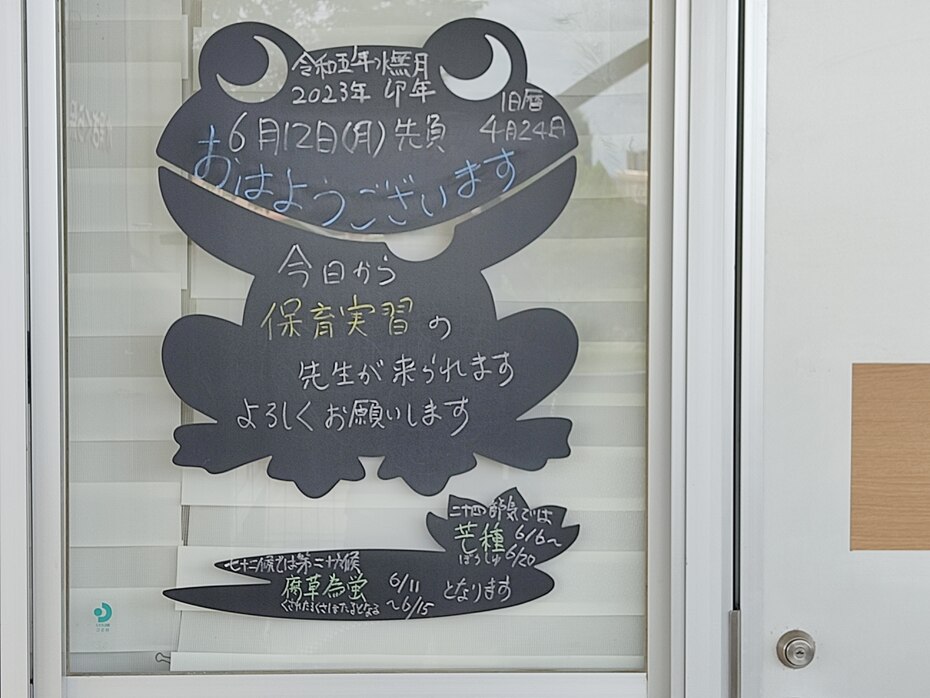 令和五年水無月
2023年 卯年
旧暦
4月24日
6月12日(月) 先負
おはようございます
今日から
保育実習の
先生が来られます
よろしくお願いします
二十四節気では
芒種 6/6～
ぼうしゅ 6/20
七十二候では第二十六候
腐草為蛍 6/11
くされたるくさほたるとなる ～6/15
となります